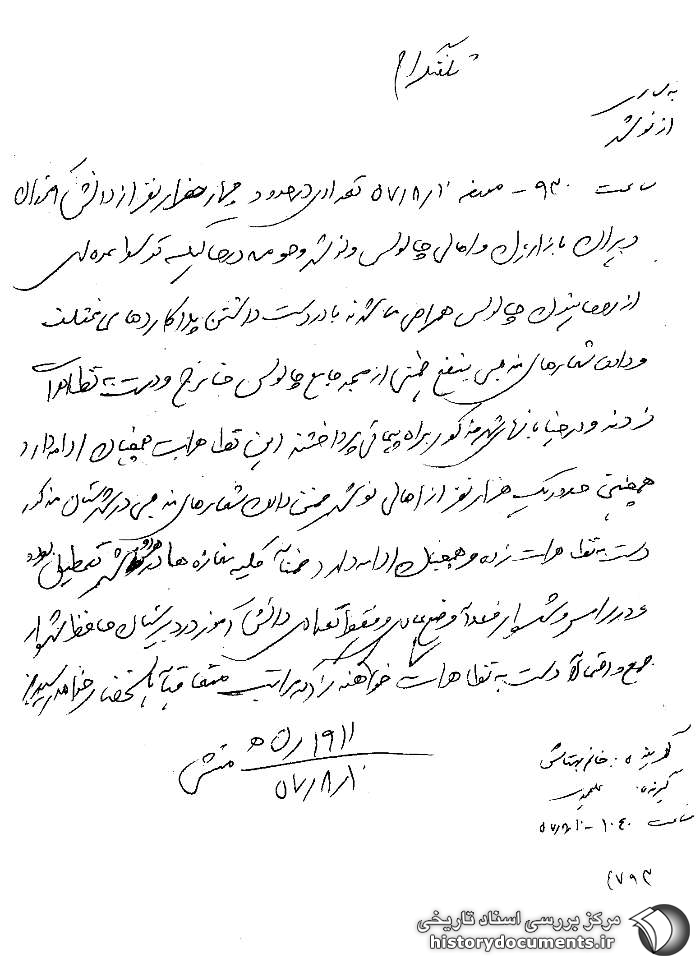 تلفنگرام
به ساری
از نوشهر
ساعت ۹۳۰ - مورخه ۵۷/۸/۱۰ تعدادی در حدود چهار هزار نفر از دانش آموزان
دبیران بازاریان و اهالی چالوس و نوشهر و حومه در حالیکه توسط عده‌ای
از روحانیون چالوس همراهی می‌شدند با در دست داشتن پلاکاردهای مختلف
و دادن شعارهای مذهبی بنفع خمینی از مسجد جامع چالوس خارج و دست به تظاهرات
زدند و در خیابانهای شهر مذکور براه پیمائی پرداختند این تظاهرات همچنان ادامه دارد
همچنین حدود یک هزار نفر از اهالی نوشهر ضمن دادن شعارهای مذهبی در شهرستان مذکور
دست به تظاهرات زده و همچنان ادامه دارد ضمناً کلیه مغازه‌ها در هر دو شهر تعطیل بوده
و در رامسر و شهسوار فعلاً وضع عادی و فقط تعدادی دانش آموز در دبیرستان حافظ شهسوار
جمع و احتمالاً دست به تظاهرات خواهند زد که مراتب متعاقباً باستحضار خواهد رسید
۱۹۱۱/ ه‍ ۵
۵۷/۸/۱۰
منش
گوینده: خانم
گیرنده:
ساعت ۱۰۴۰ - ۵۷/۸/۱۰
۴۷۹۳
مرکز بررسی اسناد تاریخی
historydocuments.ir